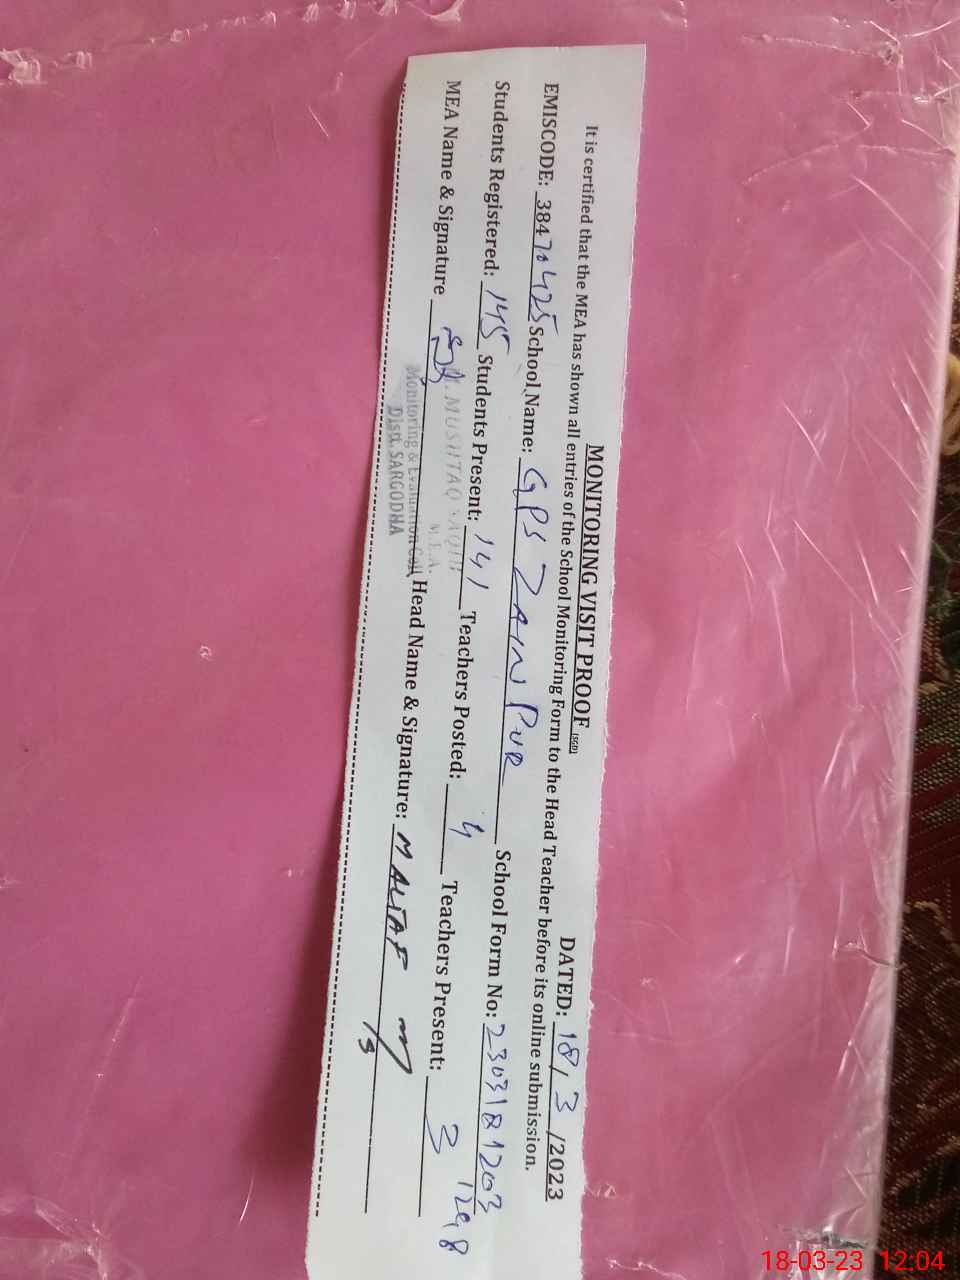 MONITORING VISIT PROOF (SGD) DATED: 18/3/2023
It is certified that the MEA has shown all entries of the School Monitoring Form to the Head Teacher before its online submission.
EMISCODE: 38470425 School Name: GPS ZAIN PUR School Form No: 2303181203
1298
Students Registered: 145 Students Present: 141 Teachers Posted: 4 Teachers Present: 3
MEA Name & Signature Head Name & Signature: M ALTAF
MUSHTAQ
M.E.A.
Monitoring & Evaluation Cell
Distt. SARGODHA
18-03-23 12:04